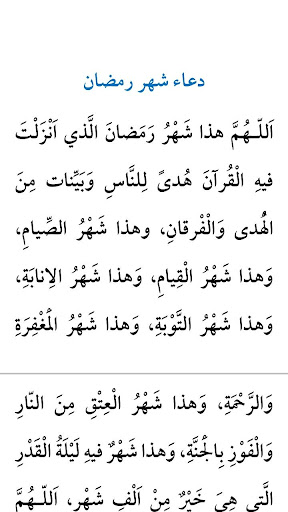 دعاء شهر رمضان
اَللّـهُمَّ هذا شَهْرُ رَمَضانَ الَّذي اَنْزَلْتَ
فيهِ الْقُرآنَ هُدىً لِلنَّاسِ وَبَيِّنات مِنَ
الْهُدى وَالْفْرقانِ، وهذا شَهْرُ الصِّيامِ،
وَهذا شَهْرُ الْقِيامِ، وَهذا شَهْرُ الاِنابَةِ،
وَهذا شَهْرُ التَّوْبَةِ، وَهذا شَهْرُ الْمَغْفِرَةِ
وَالرَّحْمَةِ، وَهذا شَهْرُ الْعِتْقِ مِنَ النّارِ
وَالْفَوْزِ بِالْجَنَّةِ، وَهذا شَهْرٌ فيهِ لَيْلَةُ الْقَدْرِ
الَّتي هِيَ خَيْرٌ مِنْ اَلْفِ شَهْر، اَللّـهُمَّ